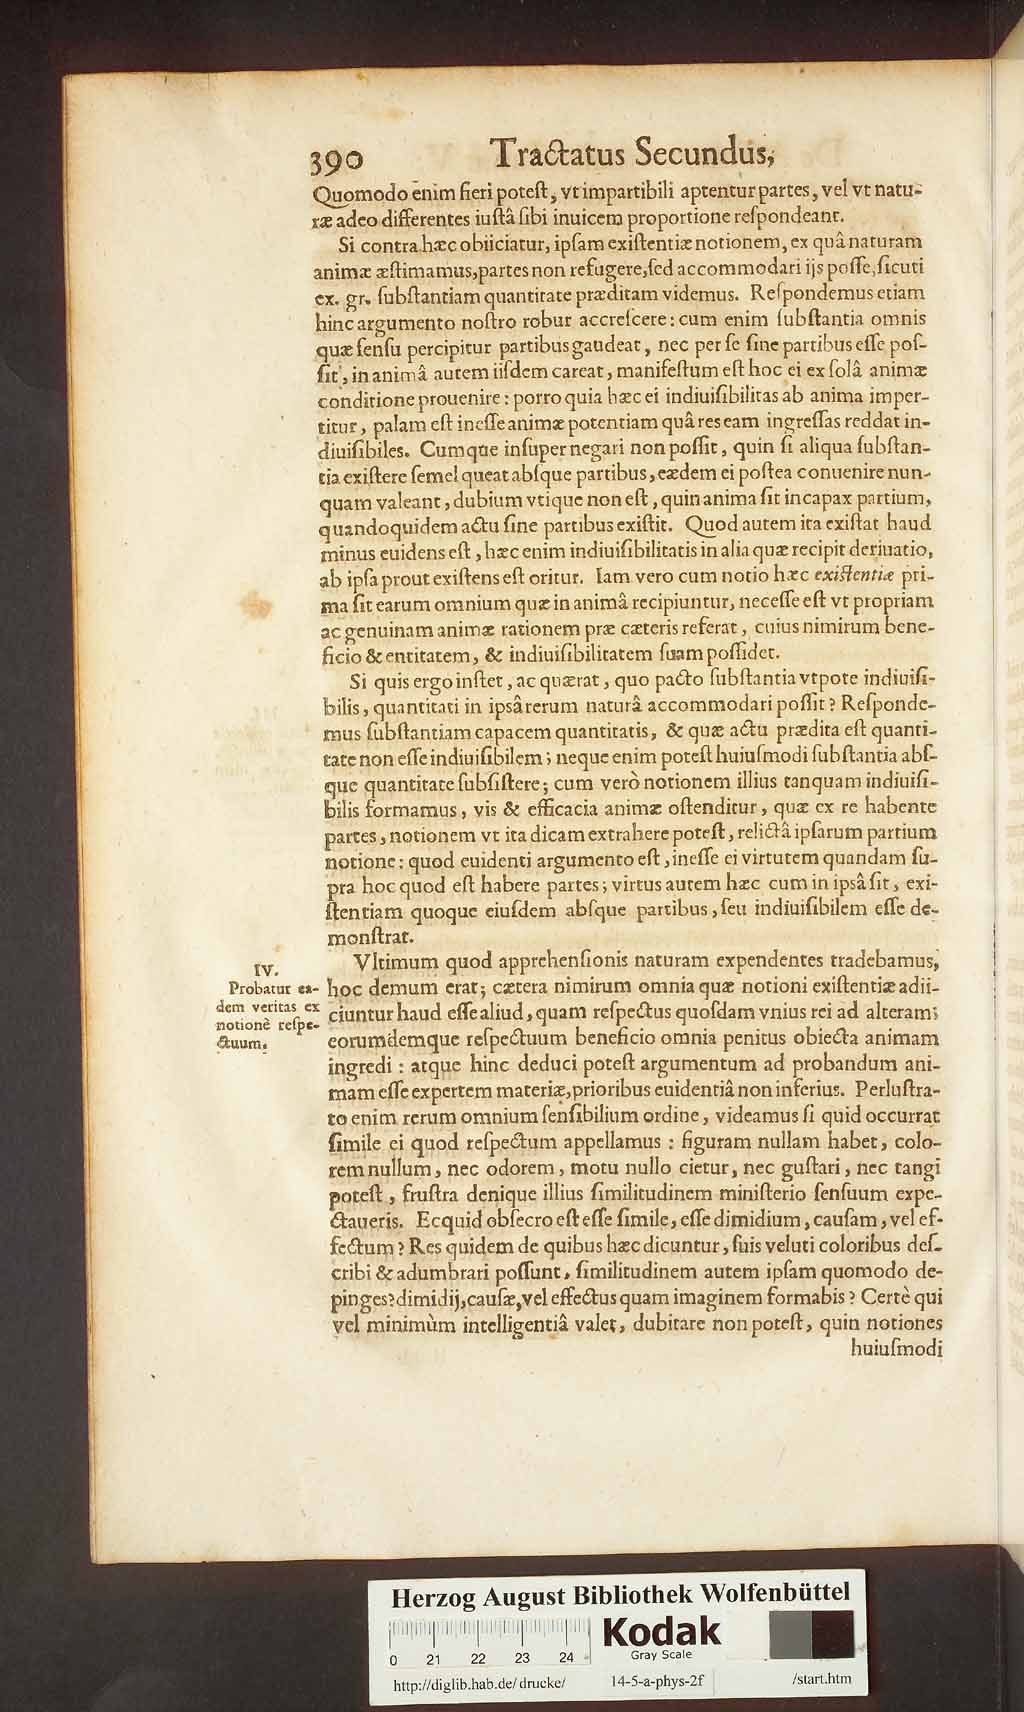 390 Tractatus Secundus,
Quomodo enim fieri poteſt, vt impartibili aptentur partes, vel vt natu-
ræ adeo differentes iuſtâ ſibi inuicem proportione reſpondeant.
Si contra hæc obiiciatur, ipſam exiſtentiæ notionem, ex quâ naturam
animæ æſtimamus, partes non refugere, ſed accommodari ijs poſſe, ſicuti
ex. gr. ſubſtantiam quantitate præditam videmus. Reſpondemus etiam
hinc argumento noſtro robur accreſcere: cum enim ſubſtantia omnis
quæ ſenſu percipitur partibus gaudeat, nec per ſe ſine partibus eſſe poſ-
ſit, in animâ autem iiſdem careat, manifeſtum eſt hoc ei ex ſolâ animæ
conditione prouenire: porro quia hæc ei indiuiſibilitas ab anima imper-
titur, palam eſt ineſſe animæ potentiam quâ res eam ingreſſas reddat in-
diuiſibiles. Cumque inſuper negari non poſſit, quin ſi aliqua ſubſtan-
tia exiſtere ſemel queat abſque partibus, eædem ei poſtea conuenire nun-
quam valeant, dubium vtique non eſt, quin anima ſit incapax partium,
quandoquidem actu ſine partibus exiſtit. Quod autem ita exiſtat haud
minus euidens eſt, hæc enim indiuiſibilitatis in alia quæ recipit deriuatio,
ab ipſa prout exiſtens eſt oritur. Iam vero cum notio hæc exiſtentiæ pri-
ma ſit earum omnium quæ in animâ recipiuntur, neceſſe eſt vt propriam
ac genuinam animæ rationem præ cæteris referat, cuius nimirum bene-
ficio & entitatem, & indiuiſibilitatem ſuam poſſidet.
Si quis ergo inſtet, ac quærat, quo pacto ſubſtantia vtpote indiuiſi-
bilis, quantitati in ipſâ rerum naturâ accommodari poſſit? Reſponde-
mus ſubſtantiam capacem quantitatis, & quæ actu prædita eſt quanti-
tate non eſſe indiuiſibilem; neque enim poteſt huiuſmodi ſubſtantia abſ-
que quantitate ſubſiſtere; cum verò notionem illius tanquam indiuiſi-
bilis formamus, vis & efficacia animæ oſtenditur, quæ ex re habente
partes, notionem vt ita dicam extrahere poteſt, relictâ ipſarum partium
notione: quod euidenti argumento eſt, ineſſe ei virtutem quandam ſu-
pra hoc quod eſt habere partes; virtus autem hæc cum in ipſâ ſit, exi-
ſtentiam quoque eiuſdem abſque partibus, ſeu indiuiſibilem eſſe de-
monſtrat.
IV.
Probatur ea-
dem veritas ex
notionè reſpe-
ctuum.
Vltimum quod apprehenſionis naturam expendentes tradebamus,
hoc demum erat; cætera nimirum omnia quæ notioni exiſtentiæ adii-
ciuntur haud eſſe aliud, quam reſpectus quoſdam vnius rei ad alteram;
eorumdemque reſpectuum beneficio omnia penitus obiecta animam
ingredi: atque hinc deduci poteſt argumentum ad probandum ani-
mam eſſe expertem materiæ, prioribus euidentiâ non inferius. Perluſtra-
to enim rerum omnium ſenſibilium ordine, videamus ſi quid occurrat
ſimile ei quod reſpectum appellamus: figuram nullam habet, colo-
rem nullum, nec odorem, motu nullo cietur, nec guſtari, nec tangi
poteſt, fruſtra denique illius ſimilitudinem miniſterio ſenſuum expe-
ctaueris. Ecquid obſecro eſt eſſe ſimile, eſſe dimidium, cauſam, vel ef-
fectum? Res quidem de quibus hæc dicuntur, ſuis veluti coloribus deſ-
cribi & adumbrari poſſunt, ſimilitudinem autem ipſam quomodo de-
pinges? dimidij, cauſæ, vel effectus quam imaginem formabis? Certè qui
vel minimùm intelligentiâ valet, dubitare non poteſt, quin notiones
huiuſmodi
Herzog August Bibliothek Wolfenbüttel
Kodak
Gray Scale
0 21 22 23 24
http://diglib.hab.de/drucke/ 14-5-a-phys-2f /start.htm